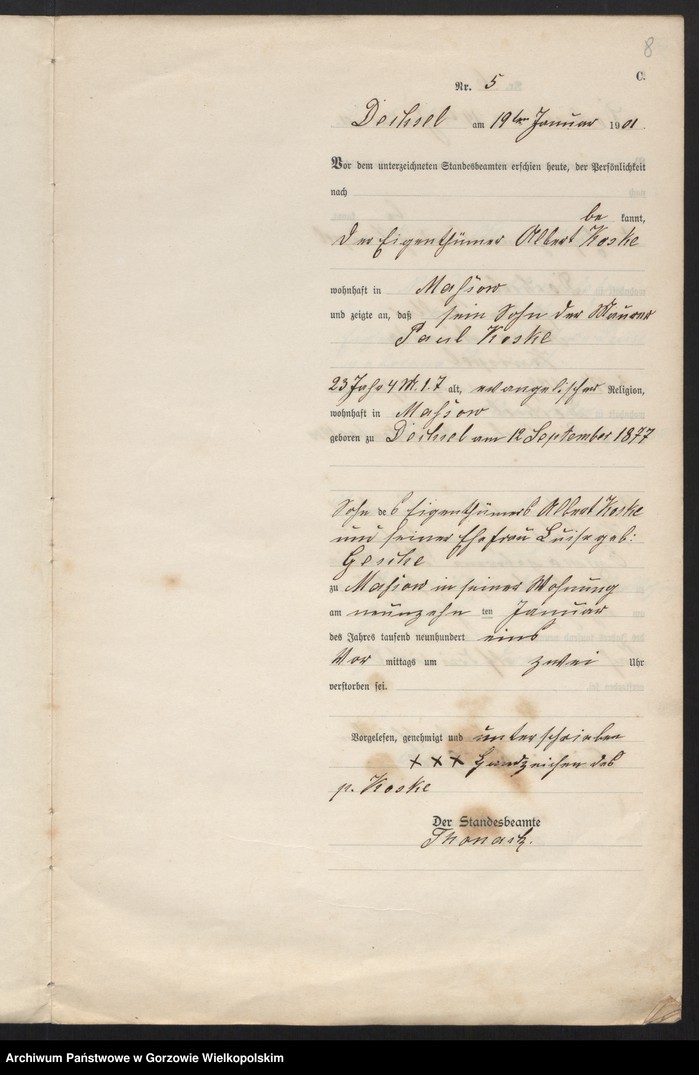 8
C.
Nr. 5
Dechsel am 19ten Januar 1901
Vor dem unterzeichneten Standesbeamten erschien heute, der Persönlichkeit
nach
be kannt,
der Eigenthümer Albert Koske
wohnhaft in Massow
und zeigte an, daß sein Sohn der Maurer
Paul Koske
23 Jahr 4 M. 7 alt, evangelischer Religion,
wohnhaft in Massow
geboren zu Dechsel am 12 September 1877
Sohn des Eigenthümers Albert Koske
und seiner Ehefrau Luise geb:
Gesche
zu Massow in seiner Wohnung
am neunzehn ten Januar
des Jahres tausend neunhundert eins
Vor mittags um zwei Uhr
verstorben sei.
Vorgelesen, genehmigt und unterschrieben
XXX Handzeichen des
p. Koske
Der Standesbeamte
Archiwum Państwowe w Gorzowie Wielkopolskim